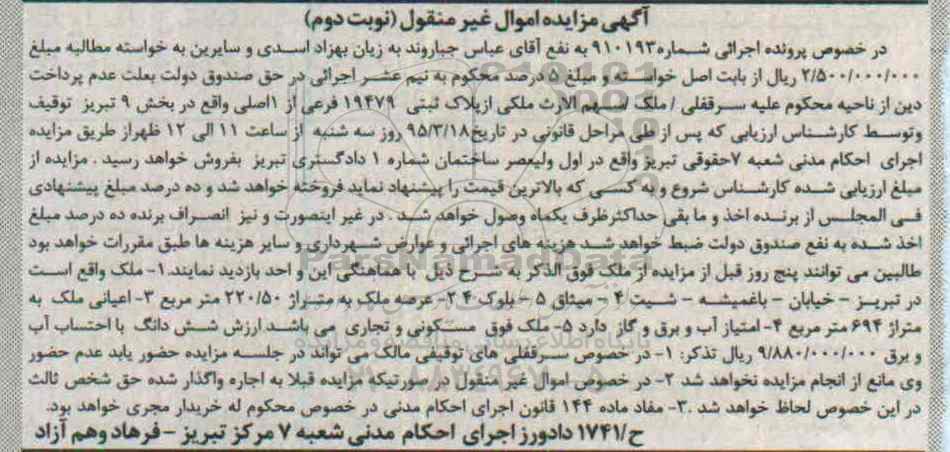 آگهی مزایده اموال غیر منقول (نوبت دوم)
در خصوص پرونده اجرائی شماره ۹۱۰۱۹۳ به نفع آقای عباس جباروند به زیان بهزاد اسدی و سایرین به خواسته مطالبه مبلغ
۲/۵۰۰/۰۰۰/۰۰۰ ریال از بابت اصل خواسته و مبلغ ۵ درصد محکوم به نیم عشر اجرائی در حق صندوق دولت بعلت عدم پرداخت
دین از ناحیه محکوم علیه سرقفلی / ملک /سهم الارث ملکی ازپلاک ثبتی ۱۹۴۷۹ فرعی از ۱اصلی واقع در بخش ۹ تبریز توقیف
وتوسط کارشناس ارزیابی که پس از طی مراحل قانونی در تاریخ ۹۵/۳/۱۸ روز سه شنبه از ساعت ۱۱ الی ۱۲ ظهراز طریق مزایده
اجرای احکام مدنی شعبه ۷حقوقی تبریز واقع در اول ولیعصر ساختمان شماره ۱ دادگستری تبریز بفروش خواهد رسید . مزایده از
مبلغ ارزیابی شده کارشناس شروع و به کسی که بالاترین قیمت را پیشنهاد نماید فروخته خواهد شد و ده درصد مبلغ پیشنهادی
فی المجلس از برنده اخذ و ما بقی حداکثرظرف یکماه وصول خواهد شد . در غیر اینصورت و نیز انصراف برنده ده درصد مبلغ
اخذ شده به نفع صندوق دولت ضبط خواهد شد هزینه های اجرائی و عوارض شهرداری و سایر هزینه ها طبق مقررات خواهد بود
طالبین می توانند پنج روز قبل از مزایده از ملک فوق الذکر به شرح ذیل با هماهنگی این و احد بازدید نمایند.۱- ملک واقع است
در تبریز - خیابان - باغمیشه - شیت ۴ - میثاق ۵ - بلوک ۴ ۲- عرصه ملک به متراژ ۲۲۰/۵۰ متر مربع ۳- اعیانی ملک به
متراژ ۶۹۴ متر مربع ۴- امتیاز آب و برق و گاز دارد ۵- ملک فوق مسکونی و تجاری می باشد ارزش شش دانگ با احتساب آب
و برق ۹/۸۸۰/۰۰۰/۰۰۰ ریال تذکر: ۱- در خصوص سرقفلی های توقیفی مالک می تواند در جلسه مزایده حضور یابد عدم حضور
وی مانع از انجام مزایده نخواهد شد ۲- در خصوص اموال غیر منقول در صورتیکه مزایده قبلا به اجاره واگذار شده حق شخص ثالث
در این خصوص لحاظ خواهد شد .۳- مفاد ماده ۱۴۴ قانون اجرای احکام مدنی در خصوص محکوم له خریدار مجری خواهد بود.
ح/۱۷۴۱ دادورز اجرای احکام مدنی شعبه ۷ مرکز تبریز - فرهاد وهم آزاد
ParsNamadData
پایگاه اطلاع رسانی مناقصه و مزایده